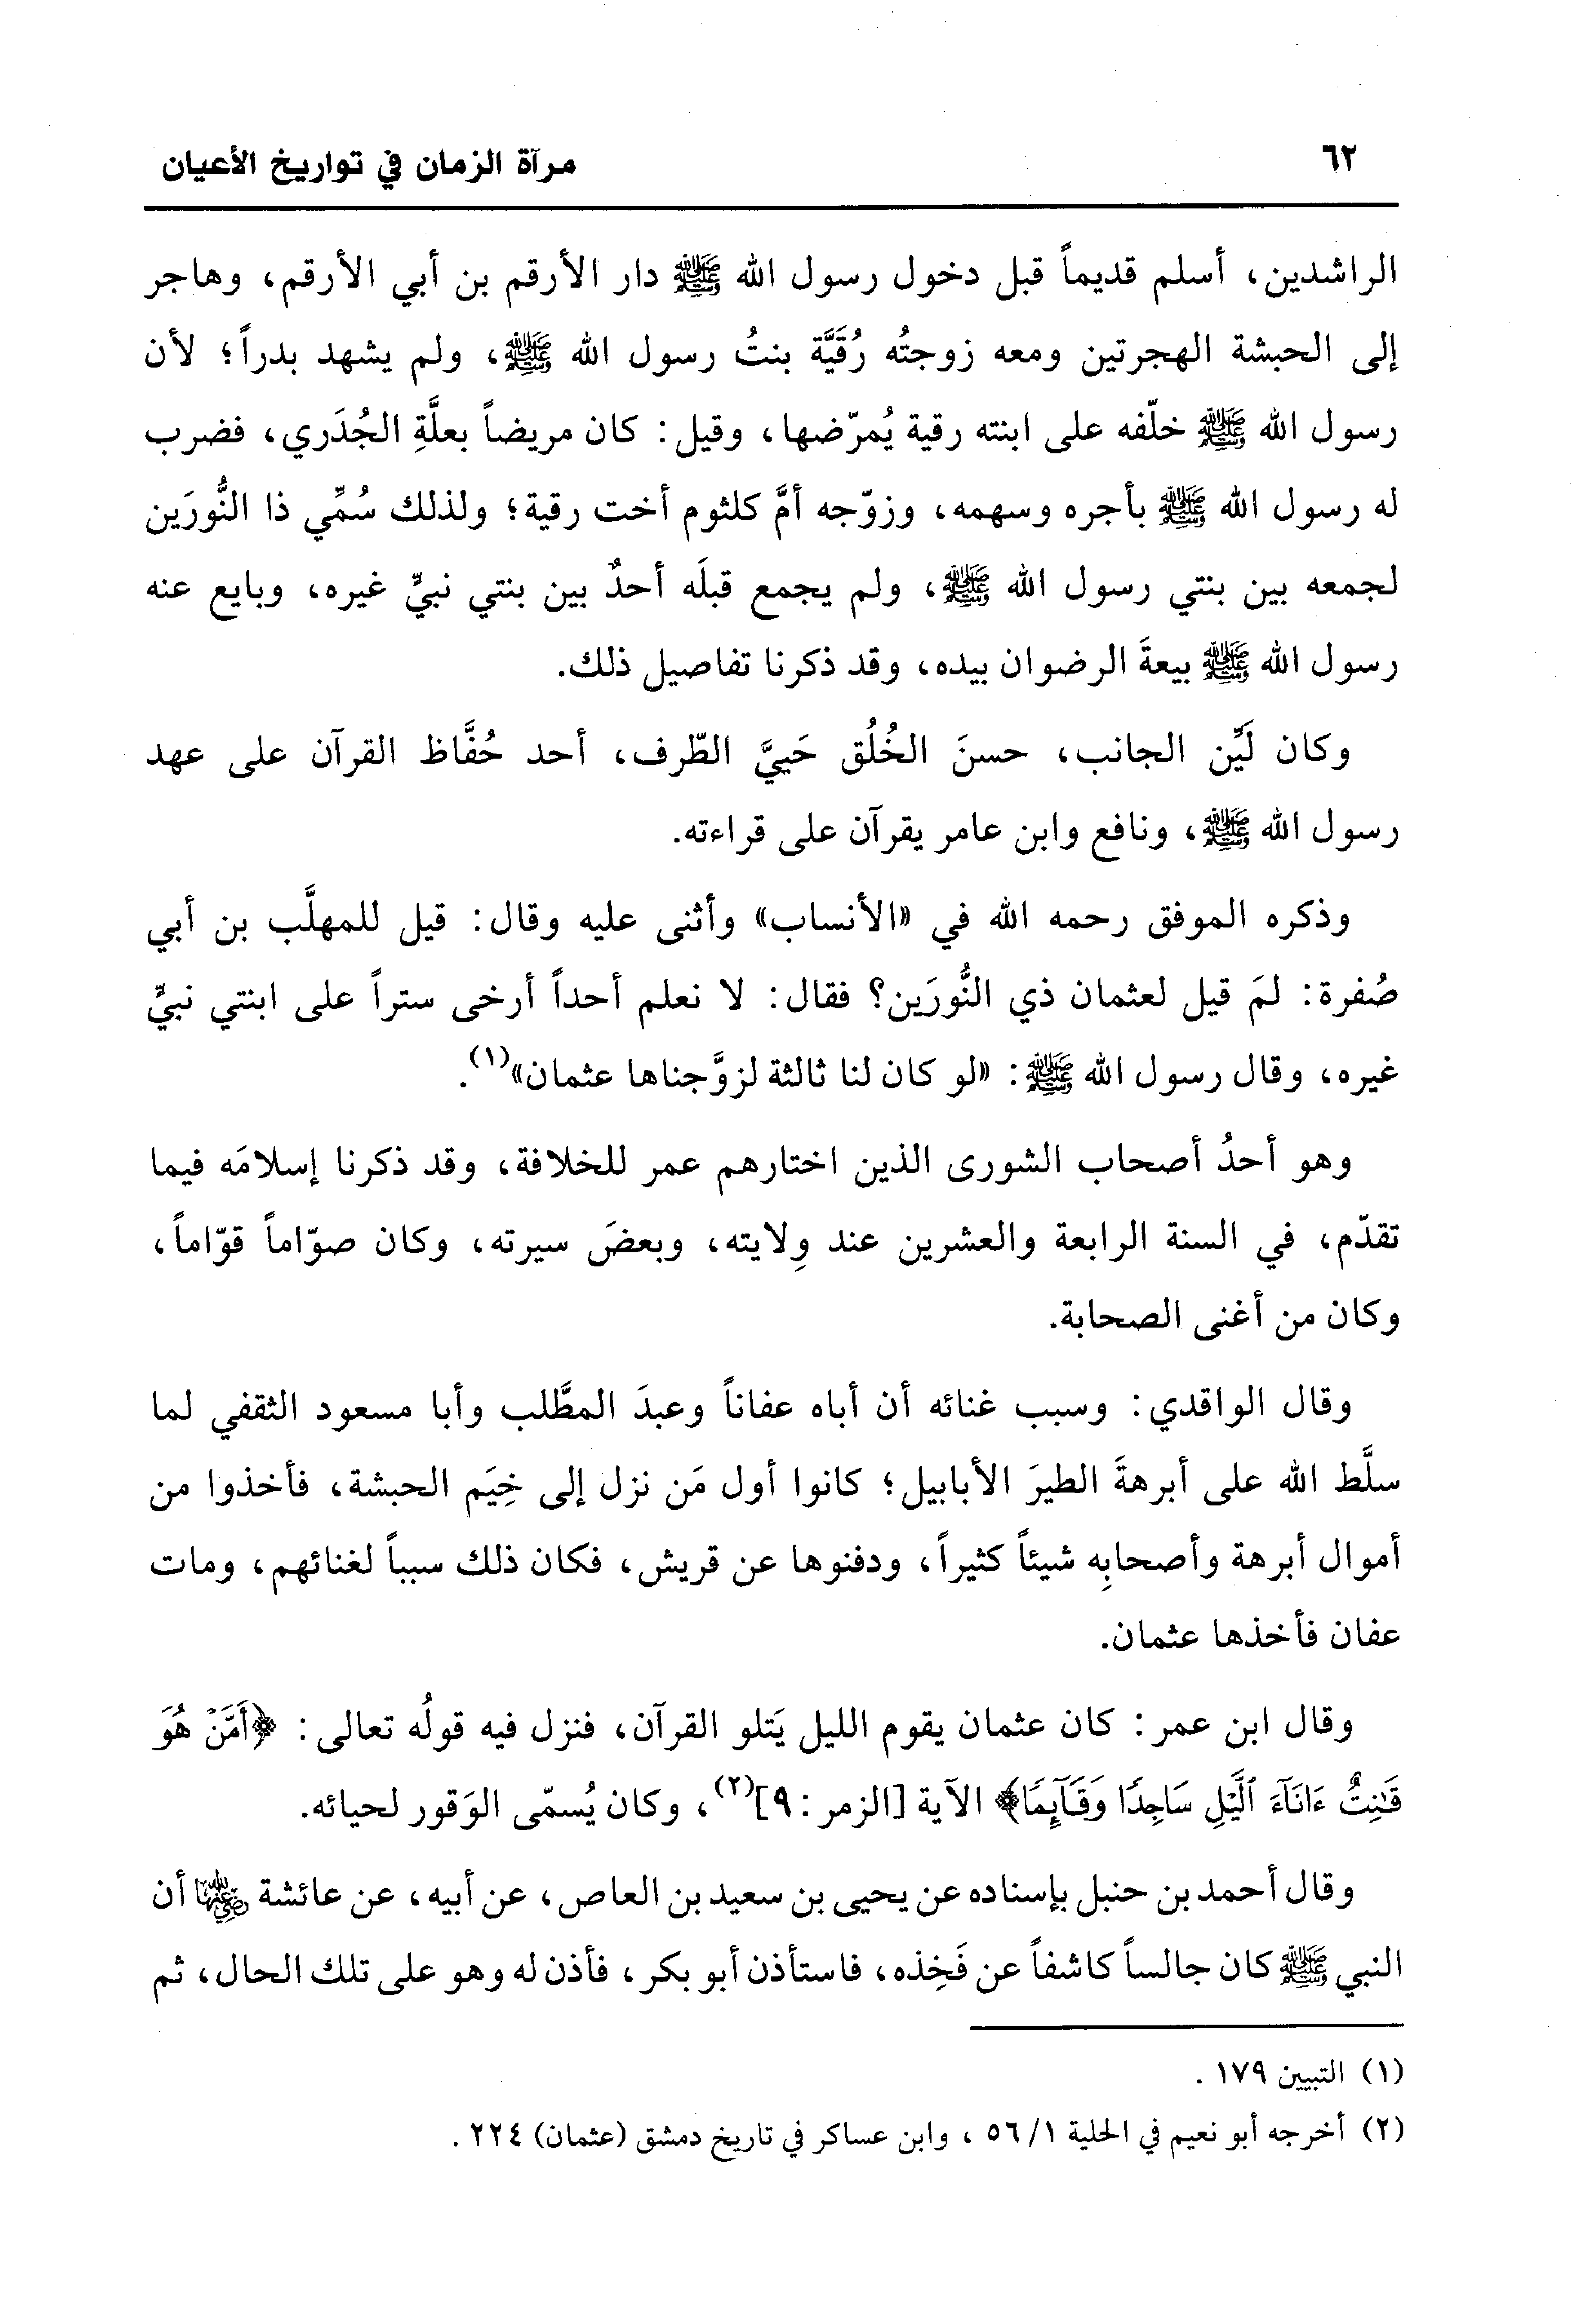 ٦٢
مرآة الزمان في تواريخ الأعيان
الراشدين، أسلم قديماً قبل دخول رسول الله ﷺ دار الأرقم بن أبي الأرقم، وهاجر
إلى الحبشة الهجرتين ومعه زوجتُه رُقَيَّة بنتُ رسول الله ﷺ، ولم يشهد بدراً؛ لأن
رسول الله ﷺ خلّفه على ابنته رقية يُمرّضها، وقيل: كان مريضاً بعلَّةِ الجُدَري، فضرب
له رسول الله ﷺ بأجره وسهمه، وزوّجه أمَّ كلثوم أخت رقية؛ ولذلك سُمِّي ذا النُّورَين
لجمعه بين بنتي رسول الله ﷺ، ولم يجمع قبلَه أحدٌ بين بنتي نبيٍّ غيره، وبايع عنه
رسول الله ﷺ بيعةَ الرضوان بيده، وقد ذكرنا تفاصيل ذلك.
وكان لَيِّن الجانب، حسنَ الخُلُق حَييَّ الطّرف، أحد حُفَّاظ القرآن على عهد
رسول الله ﷺ، ونافع وابن عامر يقرآن على قراءته.
وذكره الموفق رحمه الله في «الأنساب» وأثنى عليه وقال: قيل للمهلَّب بن أبي
صُفرة: لمَ قيل لعثمان ذي النُّورَين؟ فقال: لا نعلم أحداً أرخى ستراً على ابنتي نبيٍّ
غيره، وقال رسول الله ﷺ: «لو كان لنا ثالثة لزوَّجناها عثمان»(١).
وهو أحدُ أصحاب الشورى الذين اختارهم عمر للخلافة، وقد ذكرنا إسلامَه فيما
تقدّم، في السنة الرابعة والعشرين عند وِلايته، وبعضَ سيرته، وكان صوّاماً قوّاماً،
وكان من أغنى الصحابة.
وقال الواقدي: وسبب غنائه أن أباه عفاناً وعبدَ المطَّلب وأبا مسعود الثقفي لما
سلَّط الله على أبرهةَ الطيرَ الأبابيل؛ كانوا أول مَن نزل إلى خِيَم الحبشة، فأخذوا من
أموال أبرهة وأصحابِه شيئاً كثيراً، ودفنوها عن قريش، فكان ذلك سبباً لغنائهم، ومات
عفان فأخذها عثمان.
وقال ابن عمر: كان عثمان يقوم الليل يَتلو القرآن، فنزل فيه قولُه تعالى: ﴿أَمَّنْ هُوَ
قَٰنِتٌ ءَانَآءَ ٱلَّيْلِ سَاجِدًا وَقَآئِمًا﴾ الآية [الزمر: ٩](٢)، وكان يُسمّى الوَقور لحيائه.
وقال أحمد بن حنبل بإسناده عن يحيى بن سعيد بن العاص، عن أبيه، عن عائشة رضي الله عنها أن
النبي ﷺ كان جالساً كاشفاً عن فَخِذه، فاستأذن أبو بكر، فأذن له وهو على تلك الحال، ثم
(١) التبيين ١٧٩ .
(٢) أخرجه أبو نعيم في الحلية ١/ ٥٦ ، وابن عساكر في تاريخ دمشق (عثمان) ٢٢٤ .